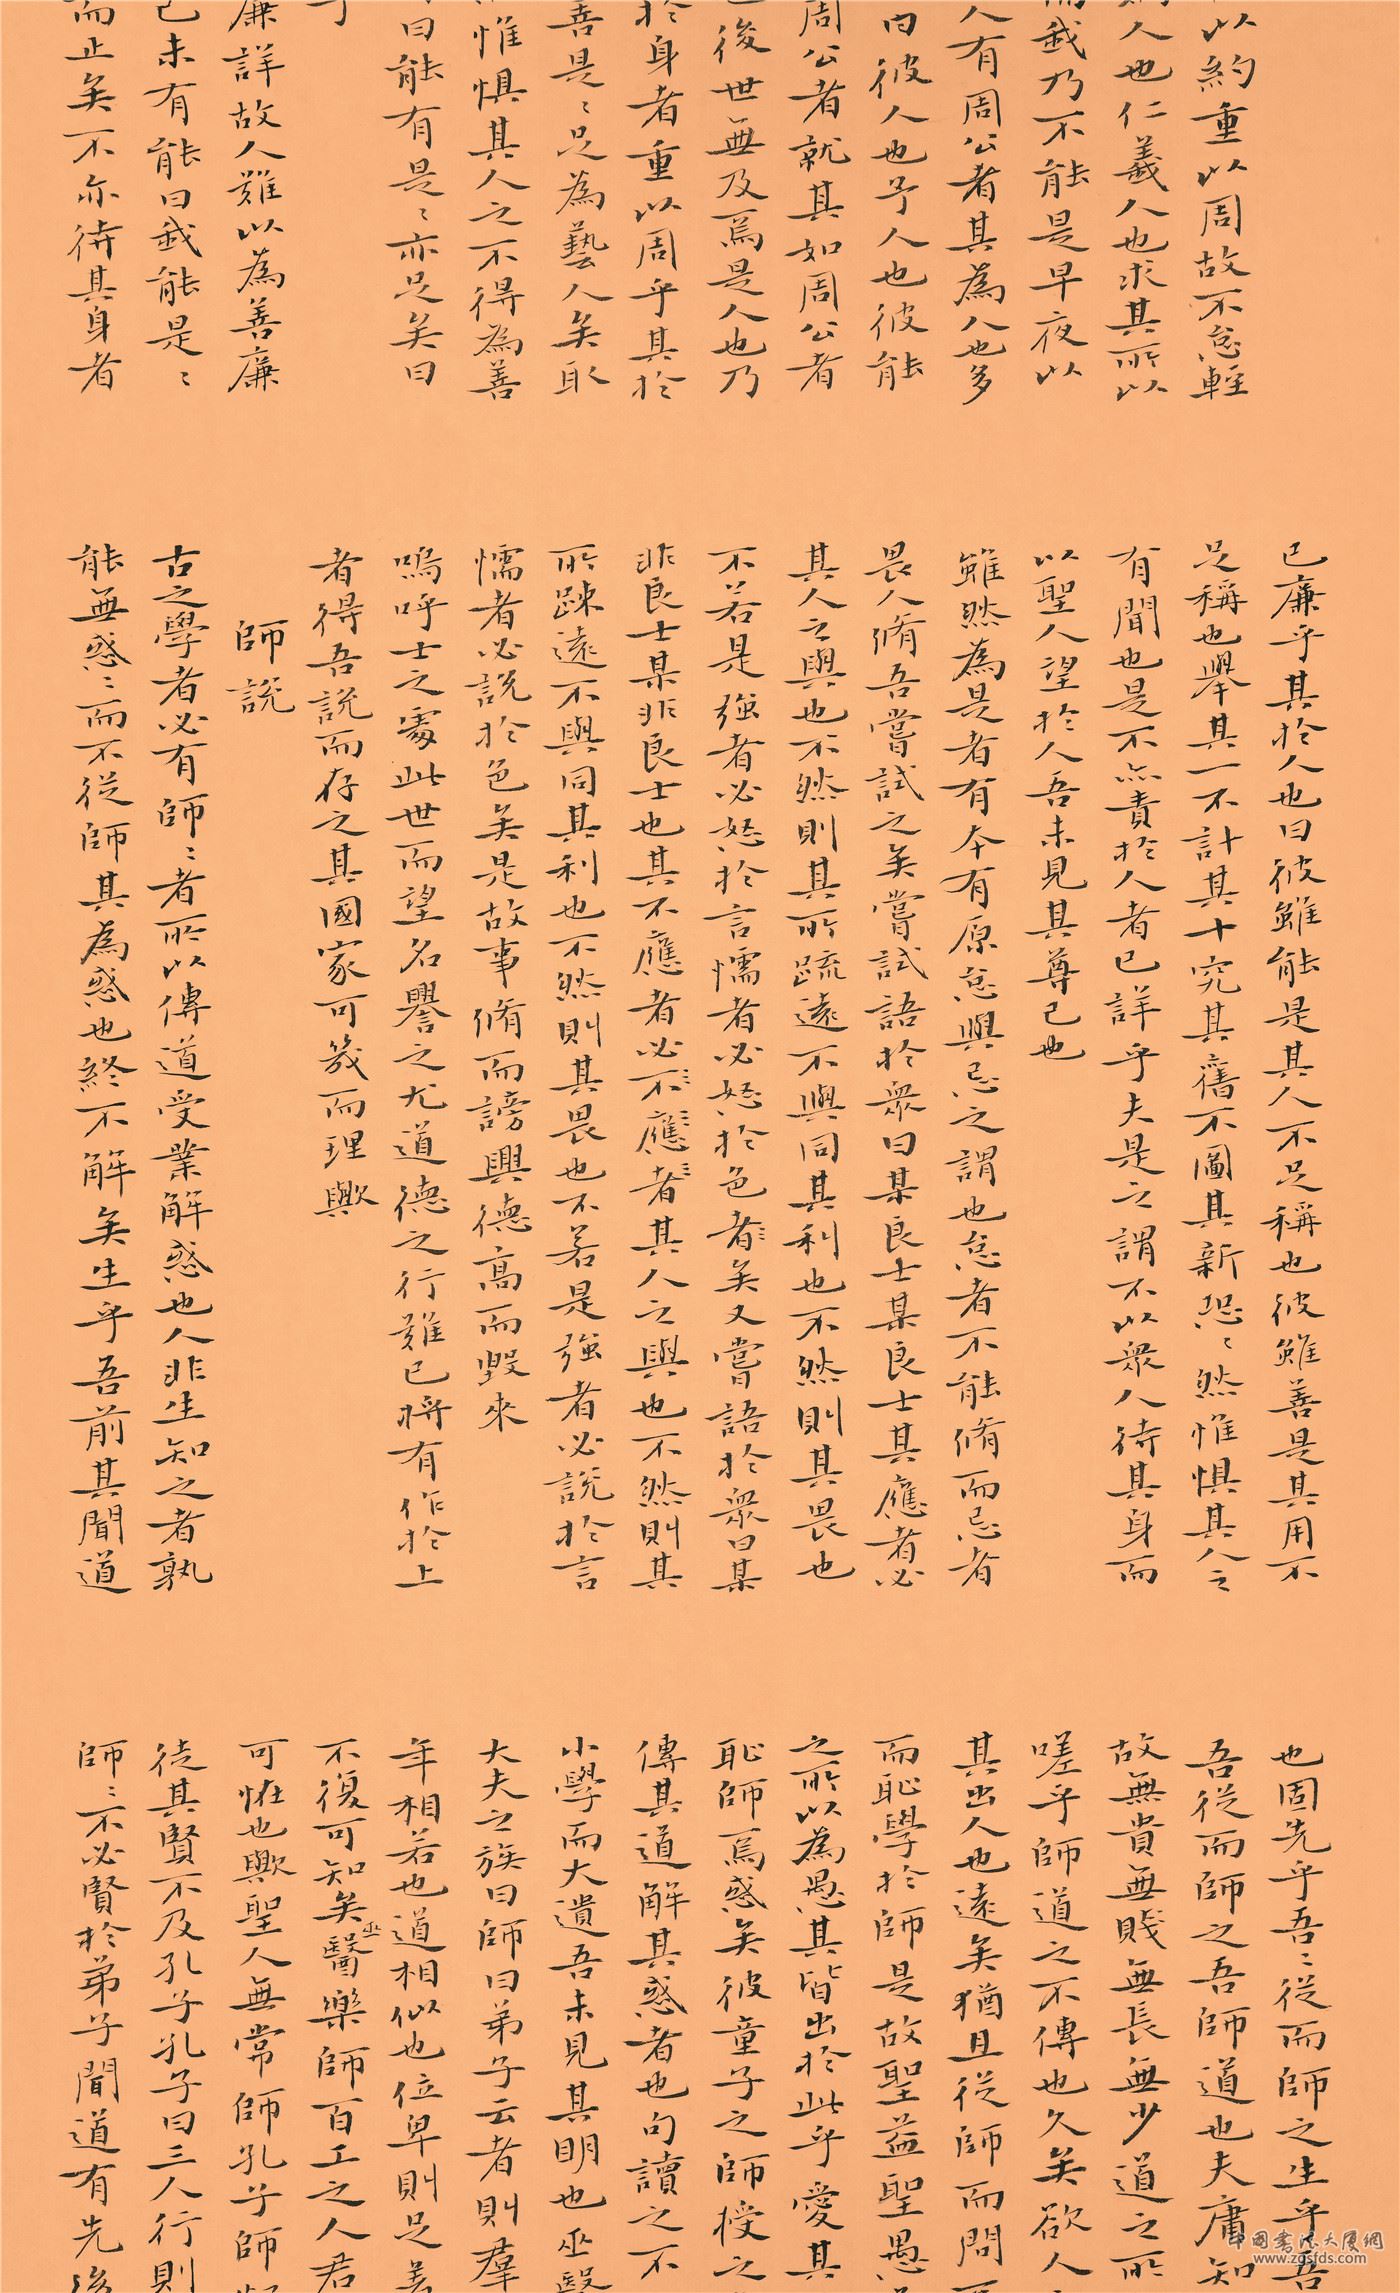 以約重以周故不怠輕
人也仁義人也求其所以
而我乃不能是早夜以
人有周公者其為人也多
曰彼人也予人也彼能
周公者就其如周公者
後世無及焉是人也乃
於身者重以周乎其於
善是〻足為藝人矣取
惟懼其人之不得為善
曰能有是〻亦足矣曰
廉詳故人難以為善廉
己未有能曰我能是〻
而止矣不亦待其身者
已廉乎其於人也曰彼雖能是其人不足稱也彼雖善是其用不
足稱也舉其一不計其十究其舊不圖其新恐〻然惟懼其人之
有聞也是不亦責於人者已詳乎夫是之謂不以眾人待其身而
以聖人望於人吾未見其尊己也
雖然為是者有本有原怠與忌之謂也怠者不能脩而忌者
畏人脩吾嘗試之矣嘗試語於眾曰某良士某良士其應者必
其人之與也不然則其所疏遠不與同其利也不然則其畏也
不若是強者必怒於言懦者必怒於色者矣又嘗語於眾曰某
非良士某非良士也其不應者必不應者其人之與也不然則其
所踈遠不與同其利也不然則其畏也不若是強者必說於言
懦者必說於色矣是故事脩而謗興德高而毀來
嗚呼士之處此世而望名譽之尤道德之行難已將有作於上
者得吾說而存之其國家可幾而理歟
師說
古之學者必有師〻者所以傳道受業解惑也人非生知之者孰
能無惑〻而不從師其為惑也終不解矣生乎吾前其聞道
也固先乎吾〻從而師之生乎吾
吾從而師之吾師道也夫庸知
故無貴無賤無長無少道之所
嗟乎師道之不傳也久矣欲人
其出人也遠矣猶且從師而問
而恥學於師是故聖益聖愚
之所以為愚其皆出於此乎愛其
恥師焉惑矣彼童子之師授之
傳其道解其惑者也句讀之不
小學而大遺吾未見其明也巫醫
大夫之族曰師曰弟子云者則羣
年相若也道相似也位卑則足羞
不復可知矣巫醫樂師百工之人君
可怪也歟聖人無常師孔子師
徒其賢不及孔子孔子曰三人行則
師〻不必賢於弟子聞道有先後
中國書法大廈網
www.zgsfds.com